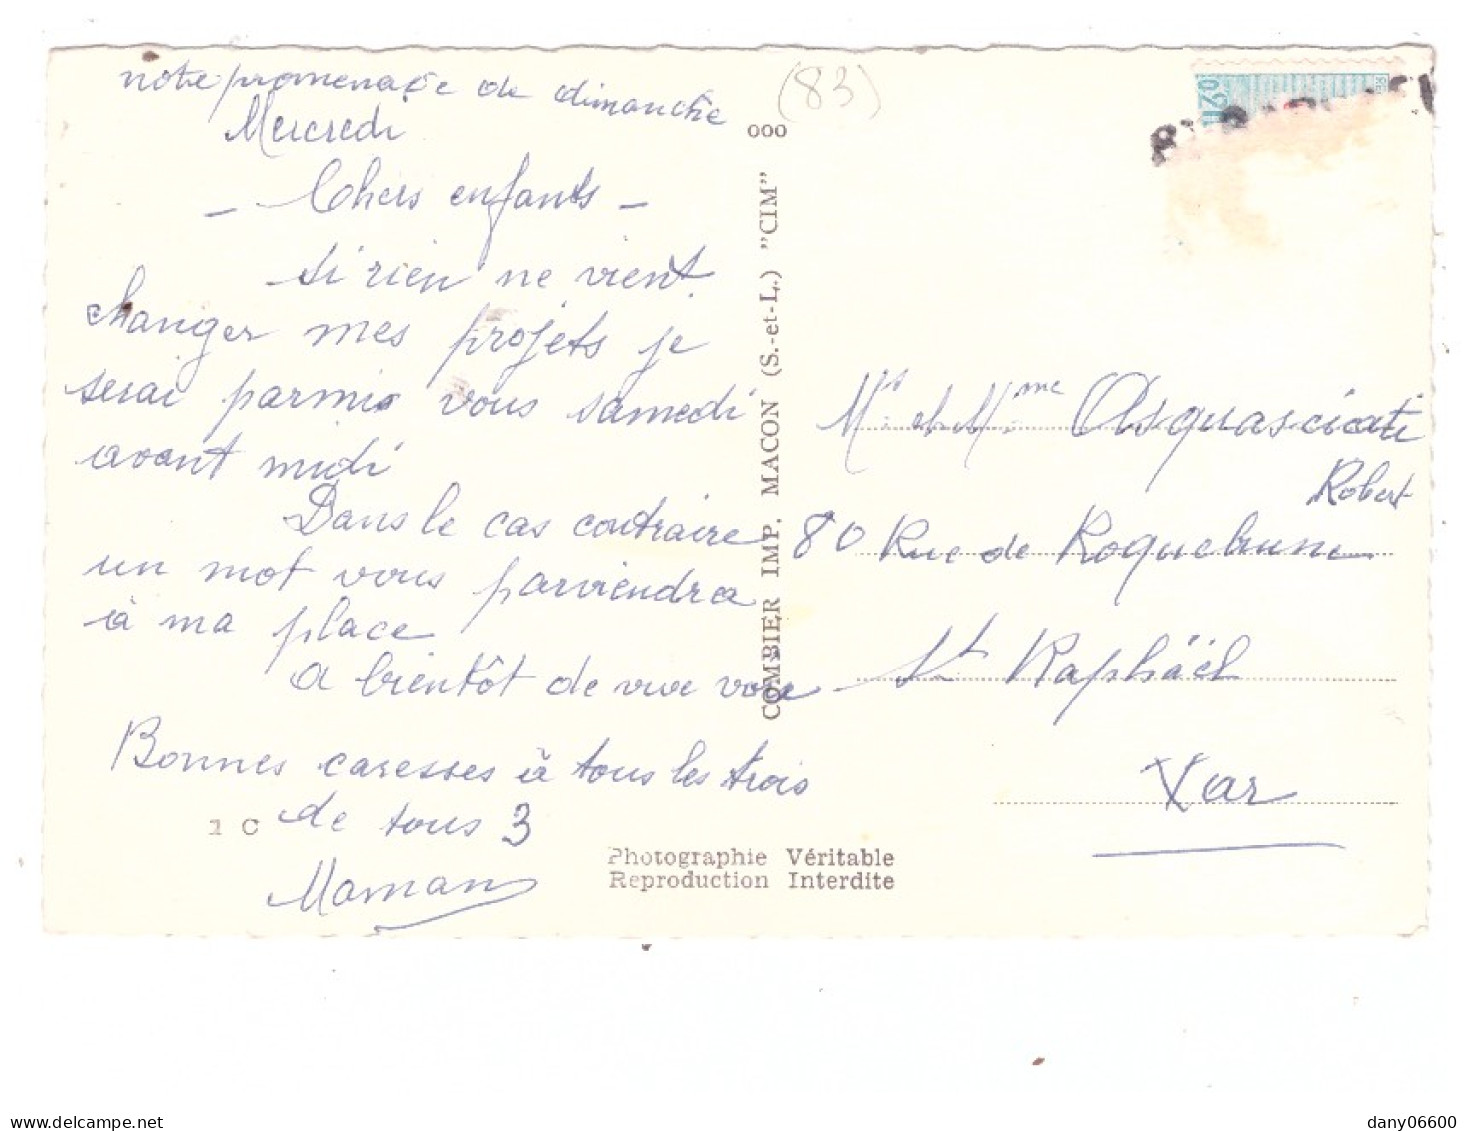 notre promenade de dimanche
Mercredi
- Chers enfants -
si rien ne vient
changer mes projets je
serai parmis vous samedi
avant midi
Dans le cas contraire
un mot vous parviendra
à ma place
A bientôt de vive voix
Bonnes caresses à tous les trois
de tous 3
Maman
1 C
(83)
000
COMBIER IMP. MACON (S.-et-L.) "CIM"
Photographie Véritable
Reproduction Interdite
Mr et Mme Asquasciati
Robert
80 Rue de Roquebrune
St Raphaël
Var
delcampe.net
dany06600